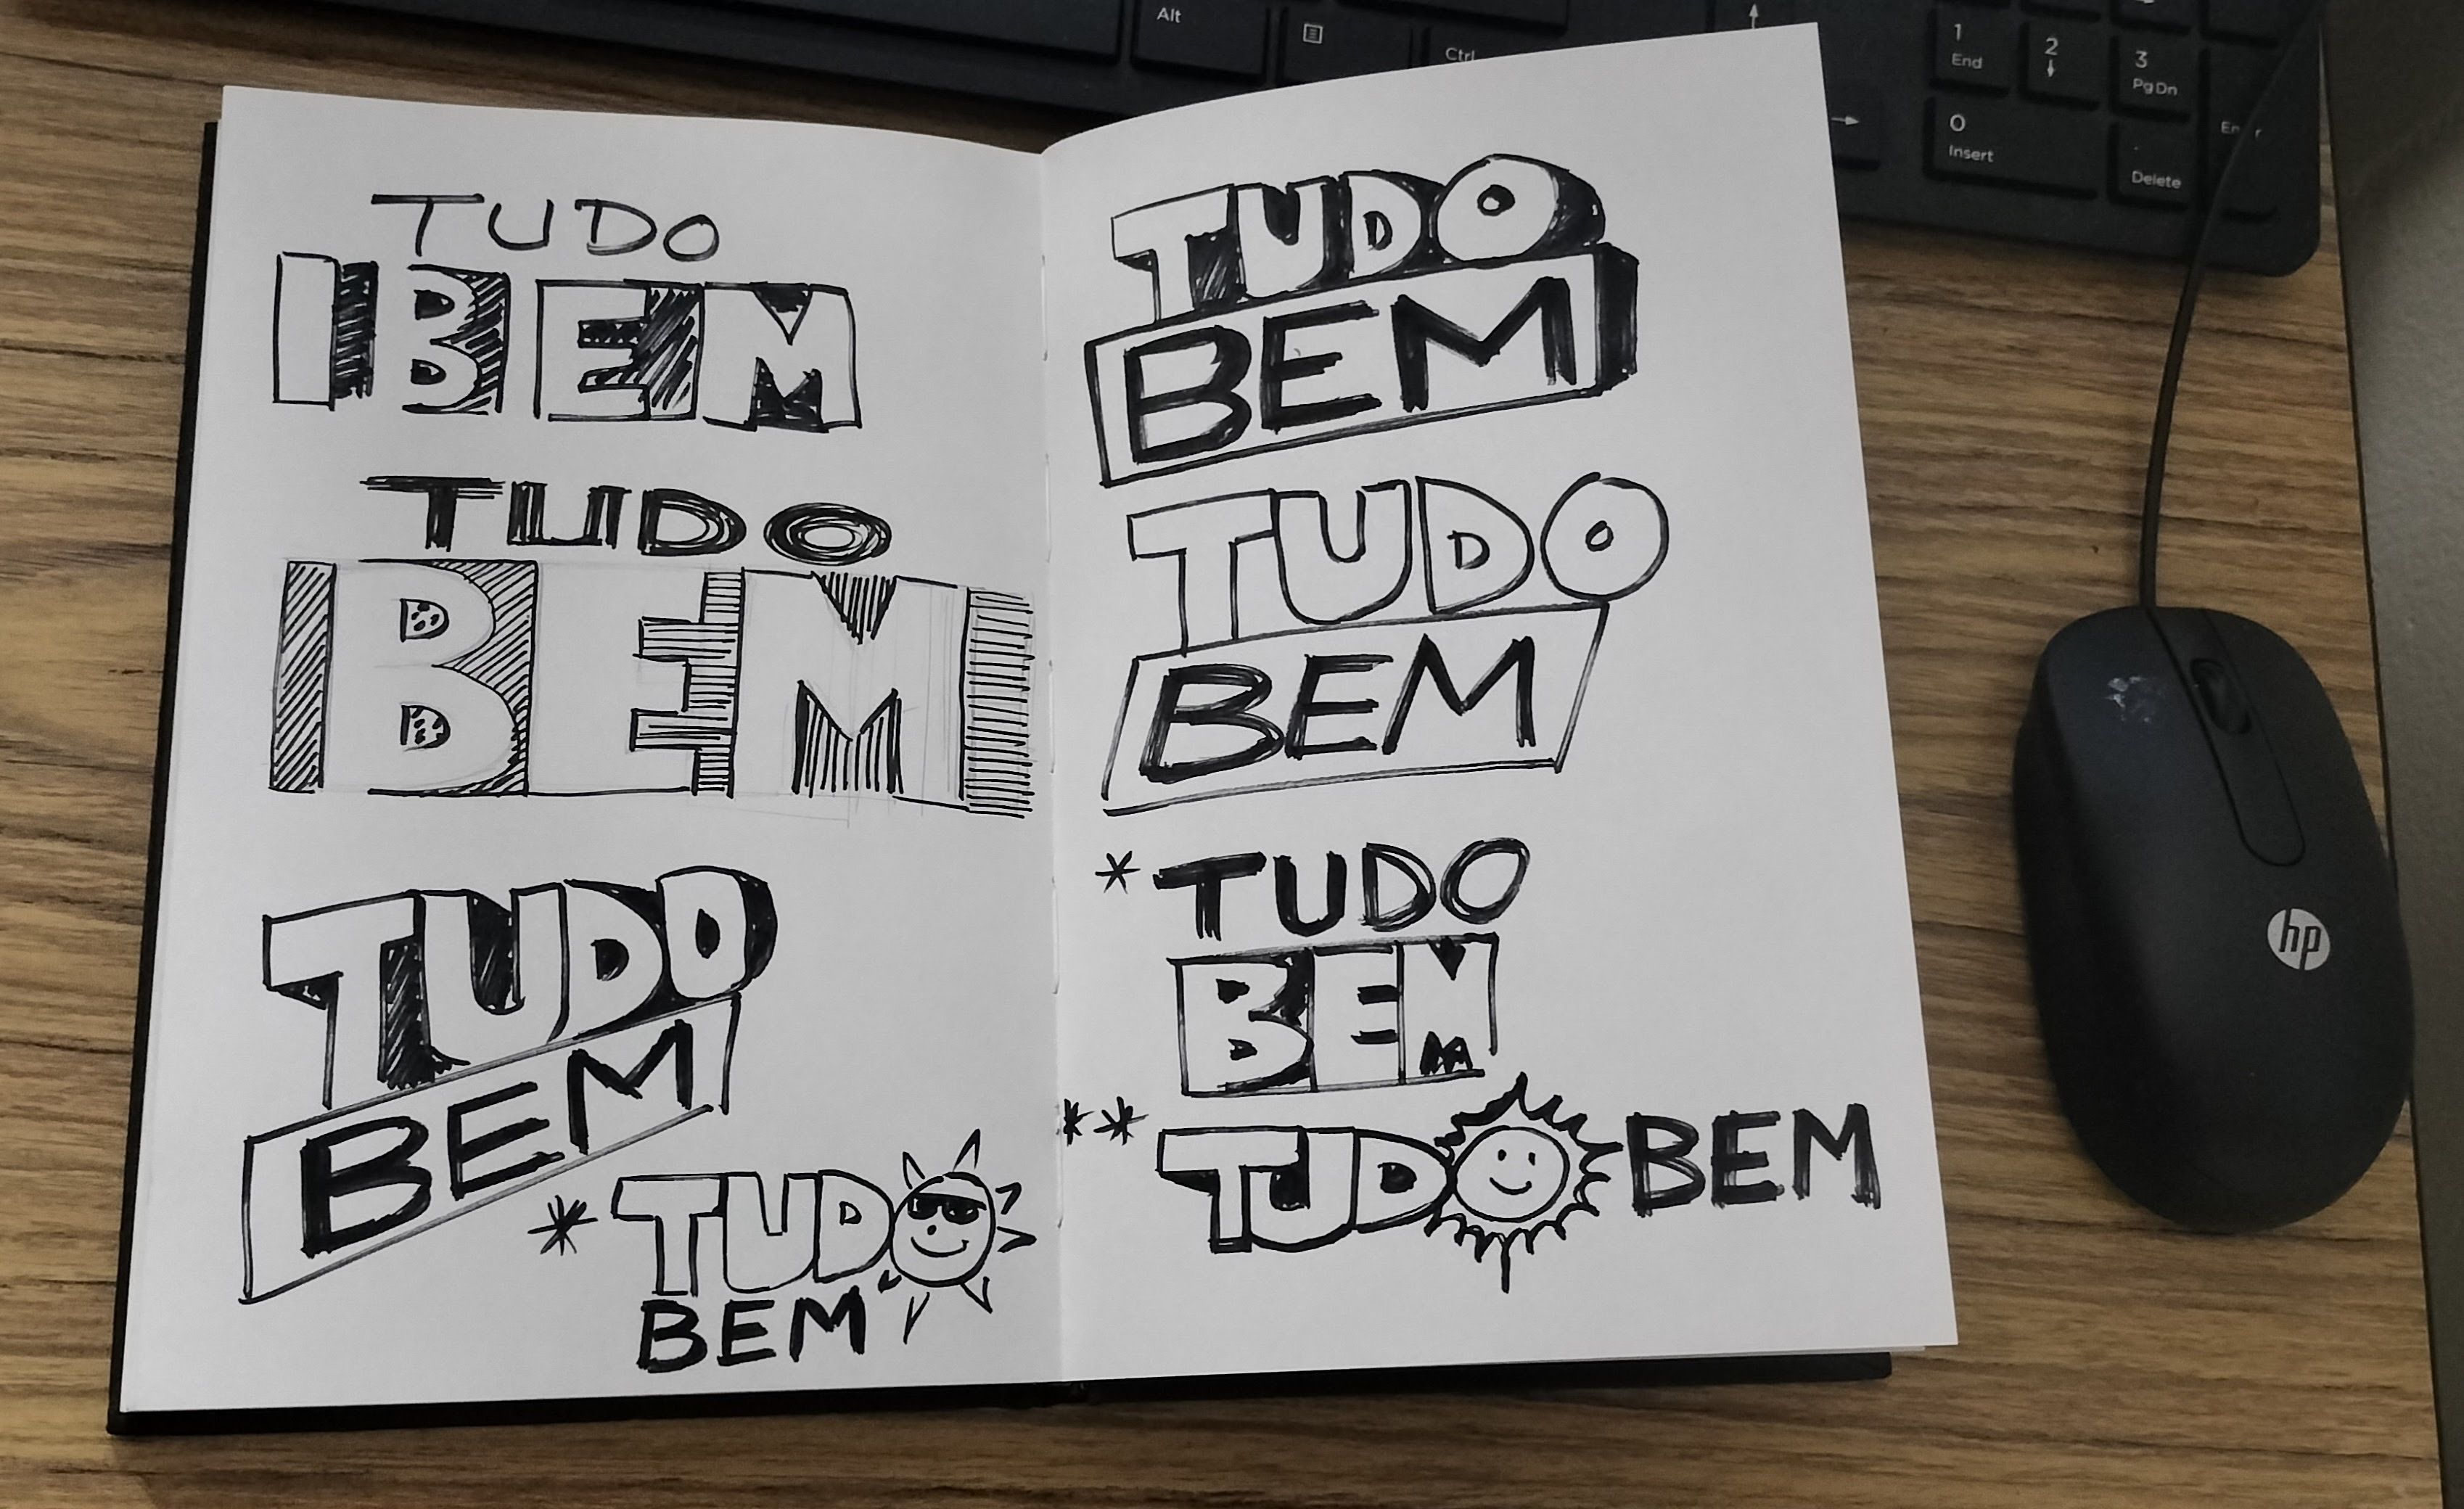 Alt
Ctrl
1
End
2
3
Pg Dn
0
Insert
Delete
TUDO
BEM
TUDO
BEM
TUDO
BEM
* TUDO
BEM
TUDO
BEM
TUDO
BEM
* TUDO
BEM
** TUDO BEM
hp